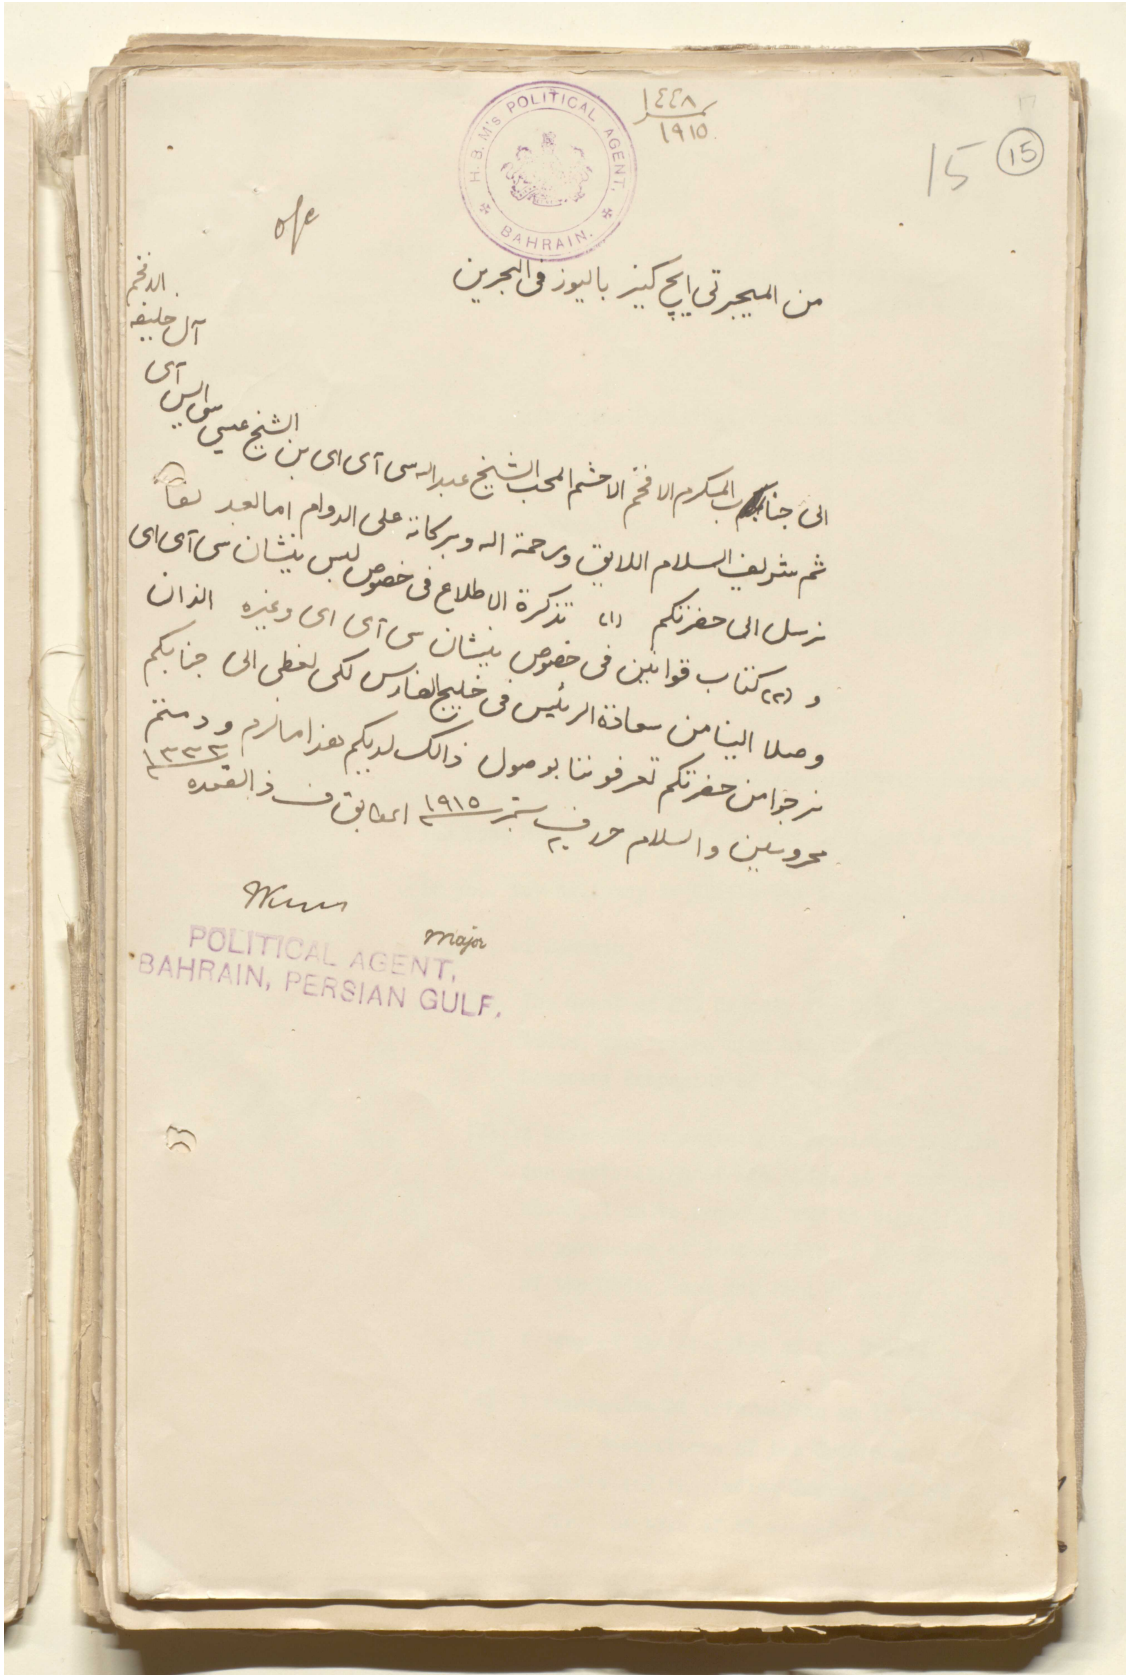 ١٤٤٨
١٩١٥
15 15
H. B. M's POLITICAL AGENT,
BAHRAIN.
o/c
من الميجر تي ايچ كيز باليوز في البحرين
الى جناب المكرم الافخم الاحشم المحب الشيخ عبداله سي آى اى بن الشيخ عيسى سى ايس آى آل خليفه الافخم
ثم شريف السلام اللايق ورحمة اله وبركاته على الدوام اما بعد
نرسل الى حضرتكم (١) تذكرة الاطلاع في خصوص لبس نيشان سى آى اى
و (٢) كتاب قوانين في خصوص نيشان سى آى اى وغيره الذان
وصلا الينا من سعادة الرئيس في خليج الفارس لكى نعطى الى جنابكم
نرجوا من حضرتكم تعرفوننا بوصول ذالك لديكم هذا ما لزم ودمتم
محروسين والسلام حرر في ستمبر ١٩١٥ المطابق ذالقعده ١٣٣٣
Major
POLITICAL AGENT,
BAHRAIN, PERSIAN GULF.